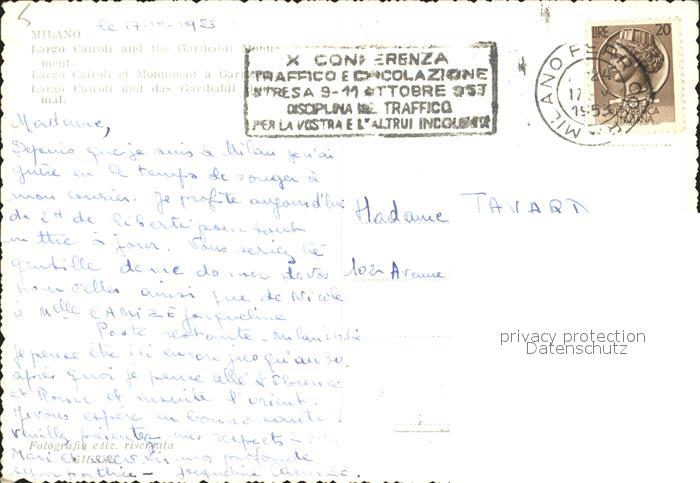 le 17-10-1953
MILANO
Largo Cairoli and the Garibaldi Monu-
ment.
Largo Cairoli et Monument à Gar
Largo Cairoli und das Garibaldi
mal.
X CONFERENZA
TRAFFICO E CIRCOLAZIONE
STRESA 9-11 OTTOBRE 953
DISCIPLINA DEL TRAFFICO
PER LA VOSTRA E L'ALTRUI INCOLUMITÀ
MILANO FERROVIA
17
1953
LIRE 20
REPUBBLICA
ITALIANA
Madame,
Depuis que je suis à Milan je n'ai
guère eu le temps de songer à
mon courrier. Je profite aujourd'hui
de 2h de liberté pour tout
mettre à jour. Vous seriez très
gentille de me donner de vos
nouvelles ainsi que de Nicole
à Melle CAMIZE Jacqueline
Poste restante - Milan Italie
Je pense être ici encore jusqu'au 30.
après quoi je pense allé à Florence
et Rome et ensuite l'orient.
Je vous espère en bonne santé
Veuillez présenter mes respects à
Mari et mes profonde
sympathie - Jacqueline Camize.
Madame TAVARD
102 Avenue
privacy protection
Datenschutz
Fotografia ediz. riservata